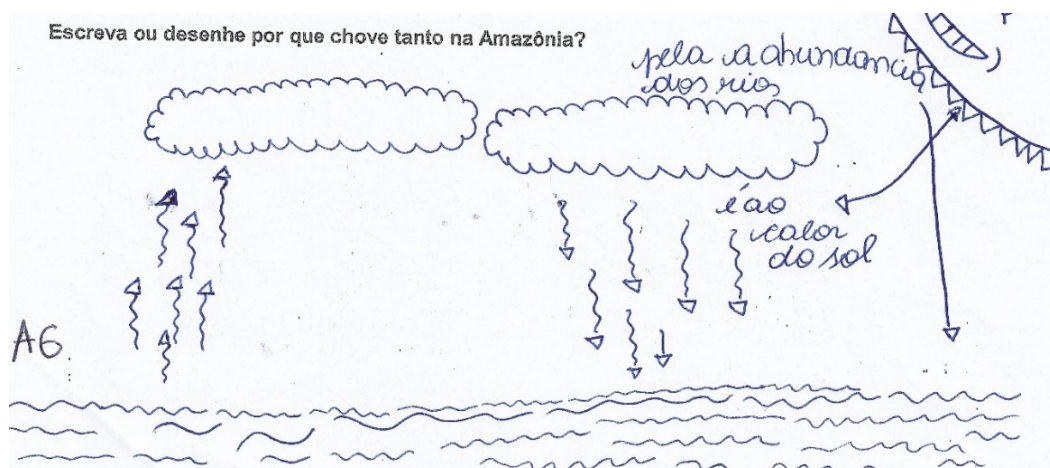 Escreva ou desenhe por que chove tanto na Amazônia?
pela a abundancia
dos rios
e ao
calor
do sol
A6